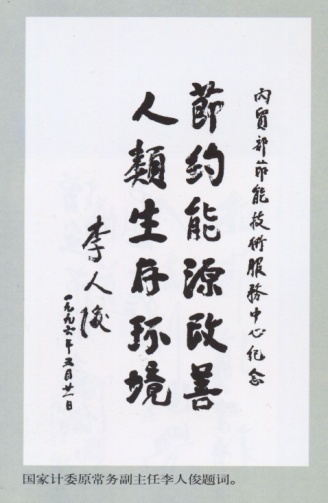 内贸部節能技術服務中心纪念
節约能源改善
人類生存环境
李人俊
一九九六年五月廿一日
国家计委原常务副主任李人俊题词。